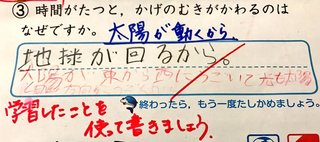 ③ 時間がたつと、かげのむきがかわるのは
なぜですか。 太陽が動くから。
地球が回るから。
太陽が東から西にうごいて光も太陽
学習したことを
使って書きましょう。
終わったら、もう一度たしかめましょう。